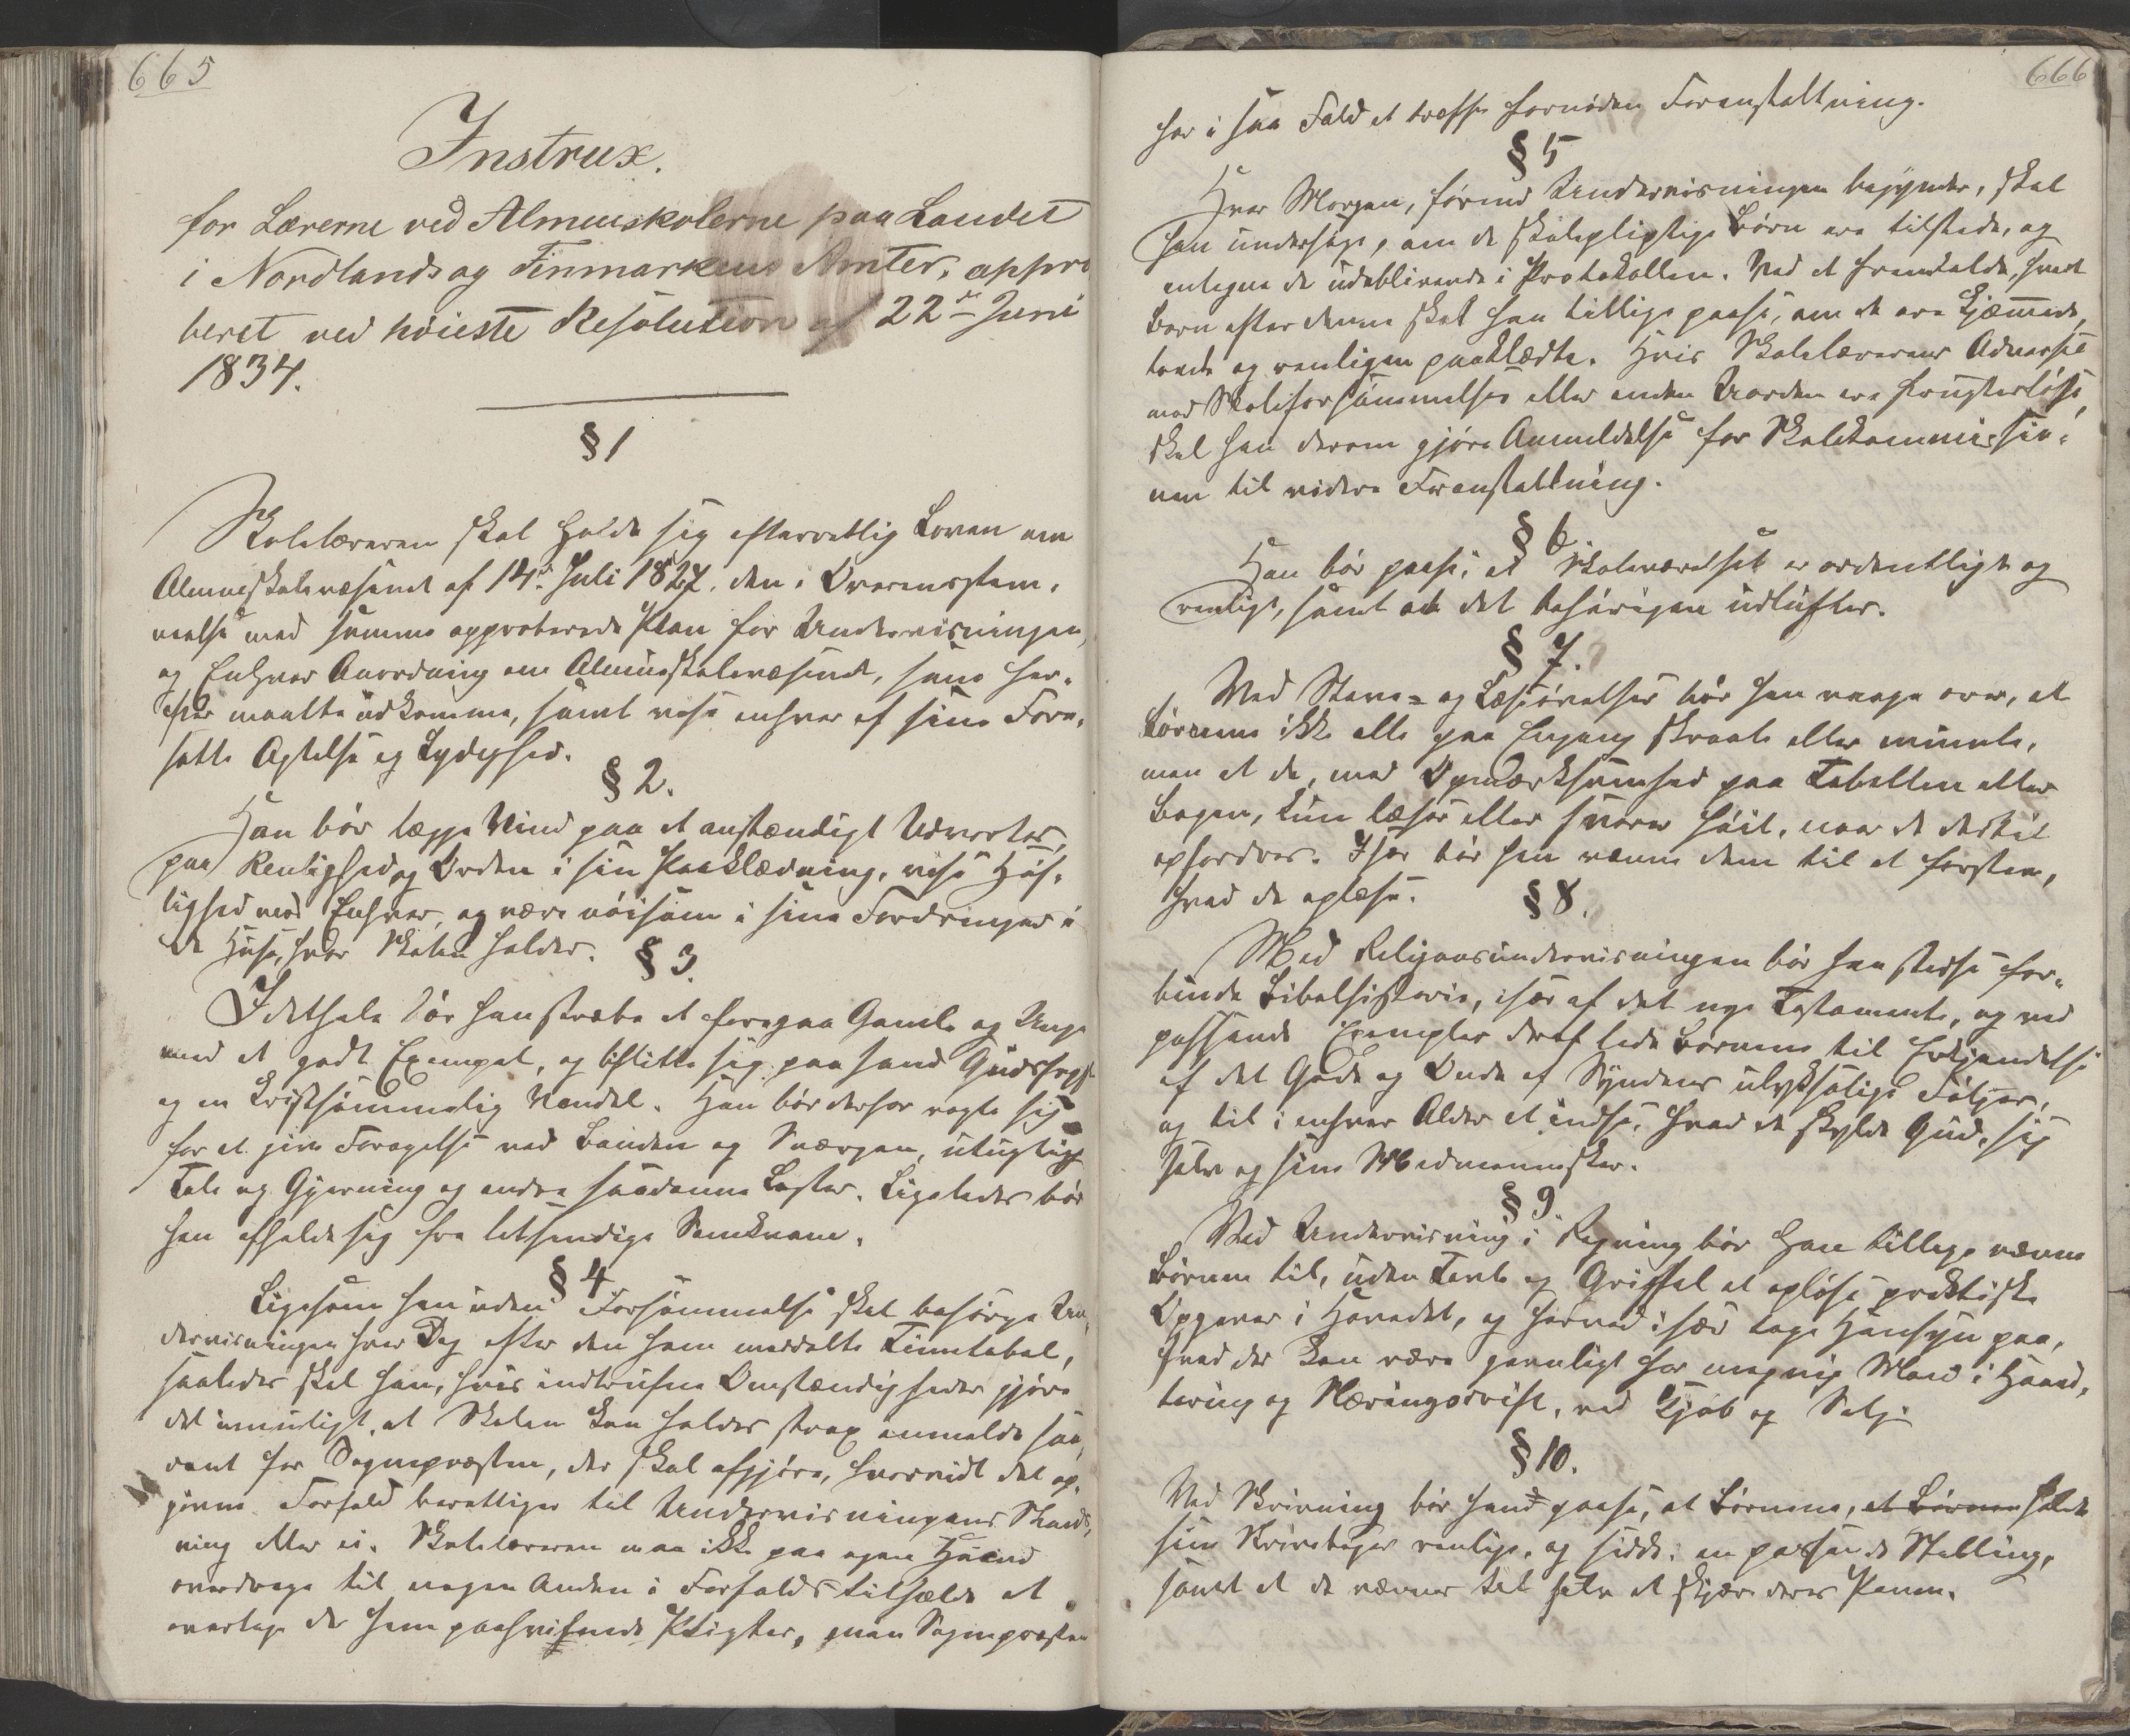 665
Instrux.
for Lærerne ved Almueskolerne paa Landet
i Nordlands og Finmarkens Amter, appro
beret ved höieste Resolution af 22de Juni
1834.
§ 1
Skolelæreren skal holde sig efterrettlig Loven om
Almueskolevæsenet af 14de Juli 1827, den i Overensstem,
melse med samme approberede Plan for Undervisningen,
og Enhver Anordning om Almueskolevæsenet, som her,
efter maatte udkomme, samt vise enhver af sine Fore,
satte Agtelse og Lydighed.
§ 2.
Han bör lægge Vind paa et anstændigt Udvortes,
paa Renlighed og Orden i sin Paaklædning, vise Höf,
lighed mod Enhver, og være nöisom i sine Fordringer i
de Huse, hvor Skolen holdes.
§ 3.
Idethele bör han stræbe at foregaa Gamle og Unge
med et godt Exempel, og beflitte sig paa sand Gudsfrygt
og en kristsömmelig Vandel. Han bör derfor vogte sig
for at give Forargelse ved Banden og Sværgen, utugtig
Tale og Gjerning og andre saadanne Laster. Ligeledes bör
han afholde sig fra letsindige Samkvem.
§ 4
Ligesom han uden Forsömmelse skal besörge Un,
dervisningen hver Dag efter den ham meddelte Timetabel,
saaledes skal han, hvis indtrufne Omstændigheder gjöre
det umuligt, at Skolen kan holdes strax anmelde saa,
dant for Sognepræsten, der skal afgjöre, hvorvidt det op,
givne Forfald berettiger til Undervisningens Stands,
ning eller ei. Skolelæreren maa ikke paa egen Haand
overdrage til nogen Anden i Forfaldstilfælde at
overtage de ham paahvilende Pligter, men Sognepræsten
666
har i saa Fald at træffe fornöden Foranstaltning.
§ 5
Hver Morgen, förend Undervisningen begynder, skal
han undersöge, om de skolepligtige Börn ere tilstede, og
antegne de udeblivende i Protokollen. Ved at fremkalde, hvert
Barn efter denne skal han tillige paase, om de ere kjæmmede,
toede og renligen paaklædte. Hvis Skolelærerens Advarsel
mod Skoleforsömmelser eller anden Uorden ere frugteslöse,
skal han derom gjöre Anmeldelse for Skolekommissio,
nen til videre Foranstaltning.
§ 6
Han bör paase, at Skoleværelset er ordentligt og
renligt, samt at det behörigen udluftes.
§ 7.
Ved Stave- og Læseövelser bör han vaage over, at
Börnene ikke alle paa Engang skraale eller mumle,
men at de, med Opmærksomhed paa Tabellen eller
Bogen, kun læser eller svarer höit, naar de dertil
opfordres. Især bör han vænne dem til at forstaa,
hvad de oplæse.
§ 8.
Med Religionsundervisningen bör han stedse for,
binde Bibelhistorie, især af det nye Testamente, og ved
passende Exempler deraf lede Börnene til Erkjendelse
af det Gode og Onde af Syndens ulyksalige Fölger,
og til i enhver Alder at indse, hvad de skylde Gud, sig
selv og sine Medmennesker.
§ 9.
Ved Undervisning i Regning bör han tillige vænne
Börnene til, uden Tavle og Griffel at oplöse praktiske
Opgaver i Hovedet, og herved især tage Hensyn paa,
hvad der kan være gavnligt for menig Mand i Haand,
tering og Næringsdrift, ved Kjöb og Salg.
§ 10.
Ved Skrivning bör han paase, at Börnene, at Börnene holde
sine Skriveböger renlige, og sidde i en passende Stilling,
samt at de vænnes til selv at skjære deres Penne.